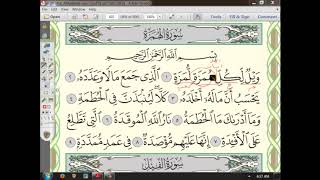 سُورَةُ الهُمَزَةِ
بِسْمِ اللَّهِ الرَّحْمَٰنِ الرَّحِيمِ
وَيْلٌ لِّكُلِّ هُمَزَةٍ لُّمَزَةٍ ١ الَّذِي جَمَعَ مَالًا وَعَدَّدَهُ ٢
يَحْسَبُ أَنَّ مَالَهُ أَخْلَدَهُ ٣ كَلَّا لَيُنبَذَنَّ فِي الْحُطَمَةِ ٤
وَمَا أَدْرَاكَ مَا الْحُطَمَةُ ٥ نَارُ اللَّهِ الْمُوقَدَةُ ٦ الَّتِي تَطَّلِعُ
عَلَى الْأَفْئِدَةِ ٧ إِنَّهَا عَلَيْهِم مُّؤْصَدَةٌ ٨ فِي عَمَدٍ مُّمَدَّدَةٍ ٩
سُورَةُ الفِيلِ